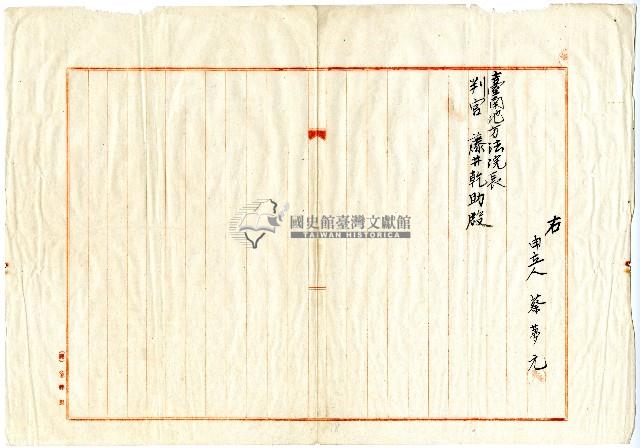 右
申立人 蔡夢元
臺南地方法院長
判官 藤井乾助殿
國史館臺灣文獻館
TAIWAN HISTORICA